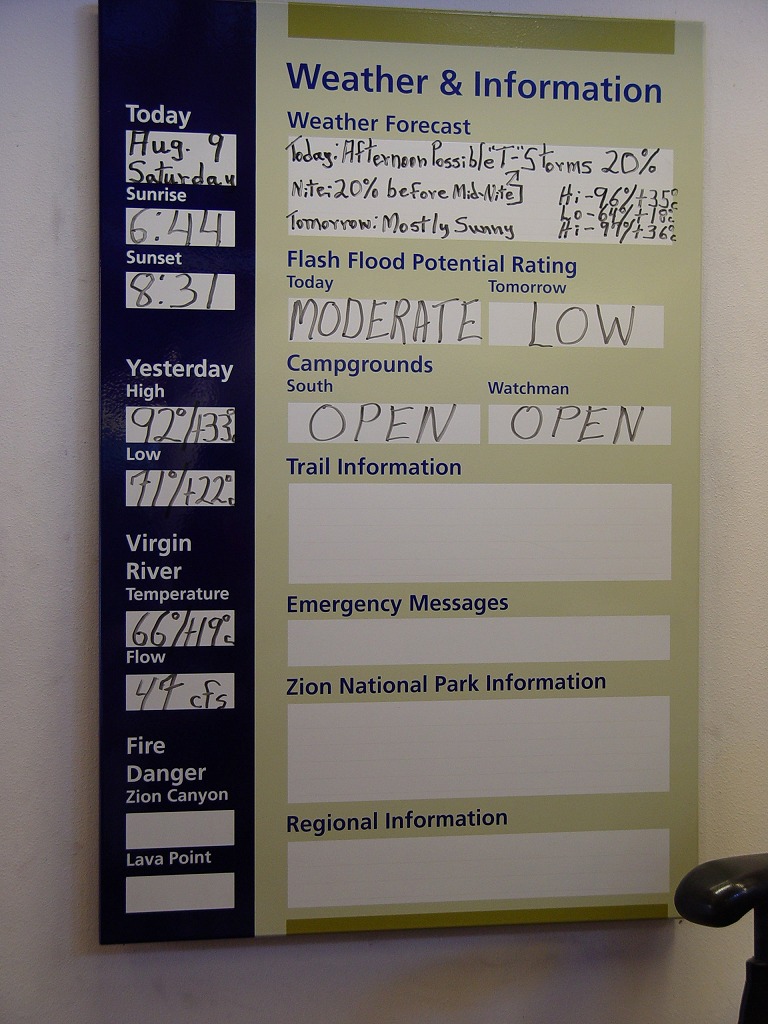 Today
Aug. 9
Saturday
Sunrise
6:44
Sunset
8:31
Yesterday
High
92°/+33°c
Low
71°/+22°c
Virgin
River
Temperature
66°/+19°c
Flow
47 cfs
Fire
Danger
Zion Canyon
Lava Point
Weather & Information
Weather Forecast
Today: Afternoon Possible "T-Storms 20%
Nite: 20% before Mid-Nite] Hi-96°/+35°c
Lo-64°/+18°c
Tomorrow: Mostly Sunny Hi-97°/+36°c
Flash Flood Potential Rating
Today Tomorrow
MODERATE LOW
Campgrounds
South Watchman
OPEN OPEN
Trail Information
Emergency Messages
Zion National Park Information
Regional Information